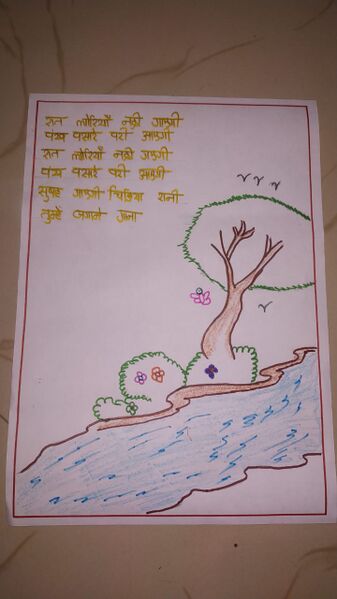 रुत लोरियाँ नदी गाएगी
पंख पसारे परी आएगी
रुत लोरियाँ नदी गाएगी
पंख पसारे परी आएगी
सुबह आएगी चिड़िया रानी
तुम्हें जगाने गाना